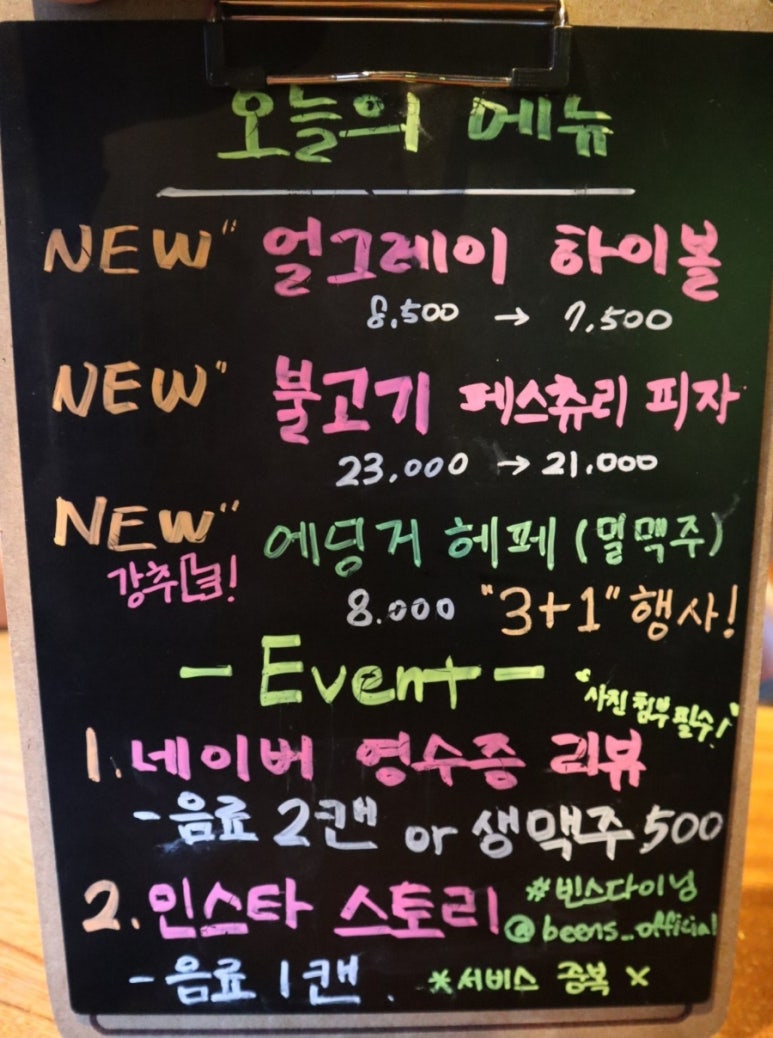 오늘의 메뉴
NEW" 얼그레이 하이볼
8,500 → 7,500
NEW" 불고기 페스츄리 피자
23,000 → 21,000
NEW" 에딩거 헤페 (밀맥주)
강추!
8.000 "3+1" 행사!
- Event -
"사진 첨부 필수!"
1. 네이버 영수증 리뷰
- 음료 2캔 or 생맥주 500
2. 인스타 스토리 #빈스다이닝
@beens_official
- 음료 1캔. *서비스 중복 X